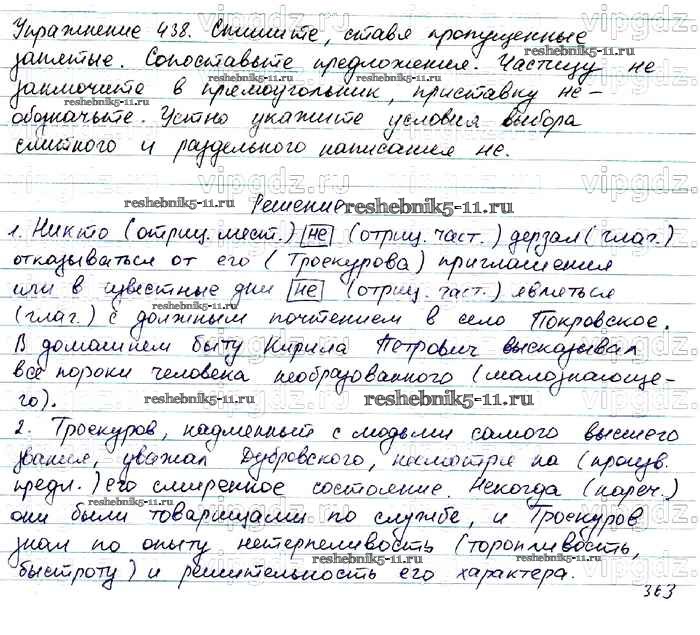 Упражнение 438. Спишите, ставя пропущенные
запятые. Сопоставьте предложения. Частицу не
заключите в прямоугольник, приставку не-
обозначьте. Устно укажите условия выбора
слитного и раздельного написания не.
Решение
1. Никто (отриц. мест.) не (отриц. част.) дерзал (глаг.)
отказываться от его (Троекурова) приглашения
или в известные дни не (отриц. част.) являться
(глаг.) с должным почтением в село Покровское.
В домашнем быту Кирила Петрович высказывал
все пороки человека необразованного (малознающе-
го).
2. Троекуров, надменный с людьми самого высшего
звания, уважал Дубровского, несмотря на (произв.
предл.) его смиренное состояние. Некогда (нареч.)
они были товарищами по службе, и Троекуров
знал по опыту нетерпеливость (торопливость,
быстроту) и решительность его характера.
363
vipgdz.ru
reshebnik5-11.ru